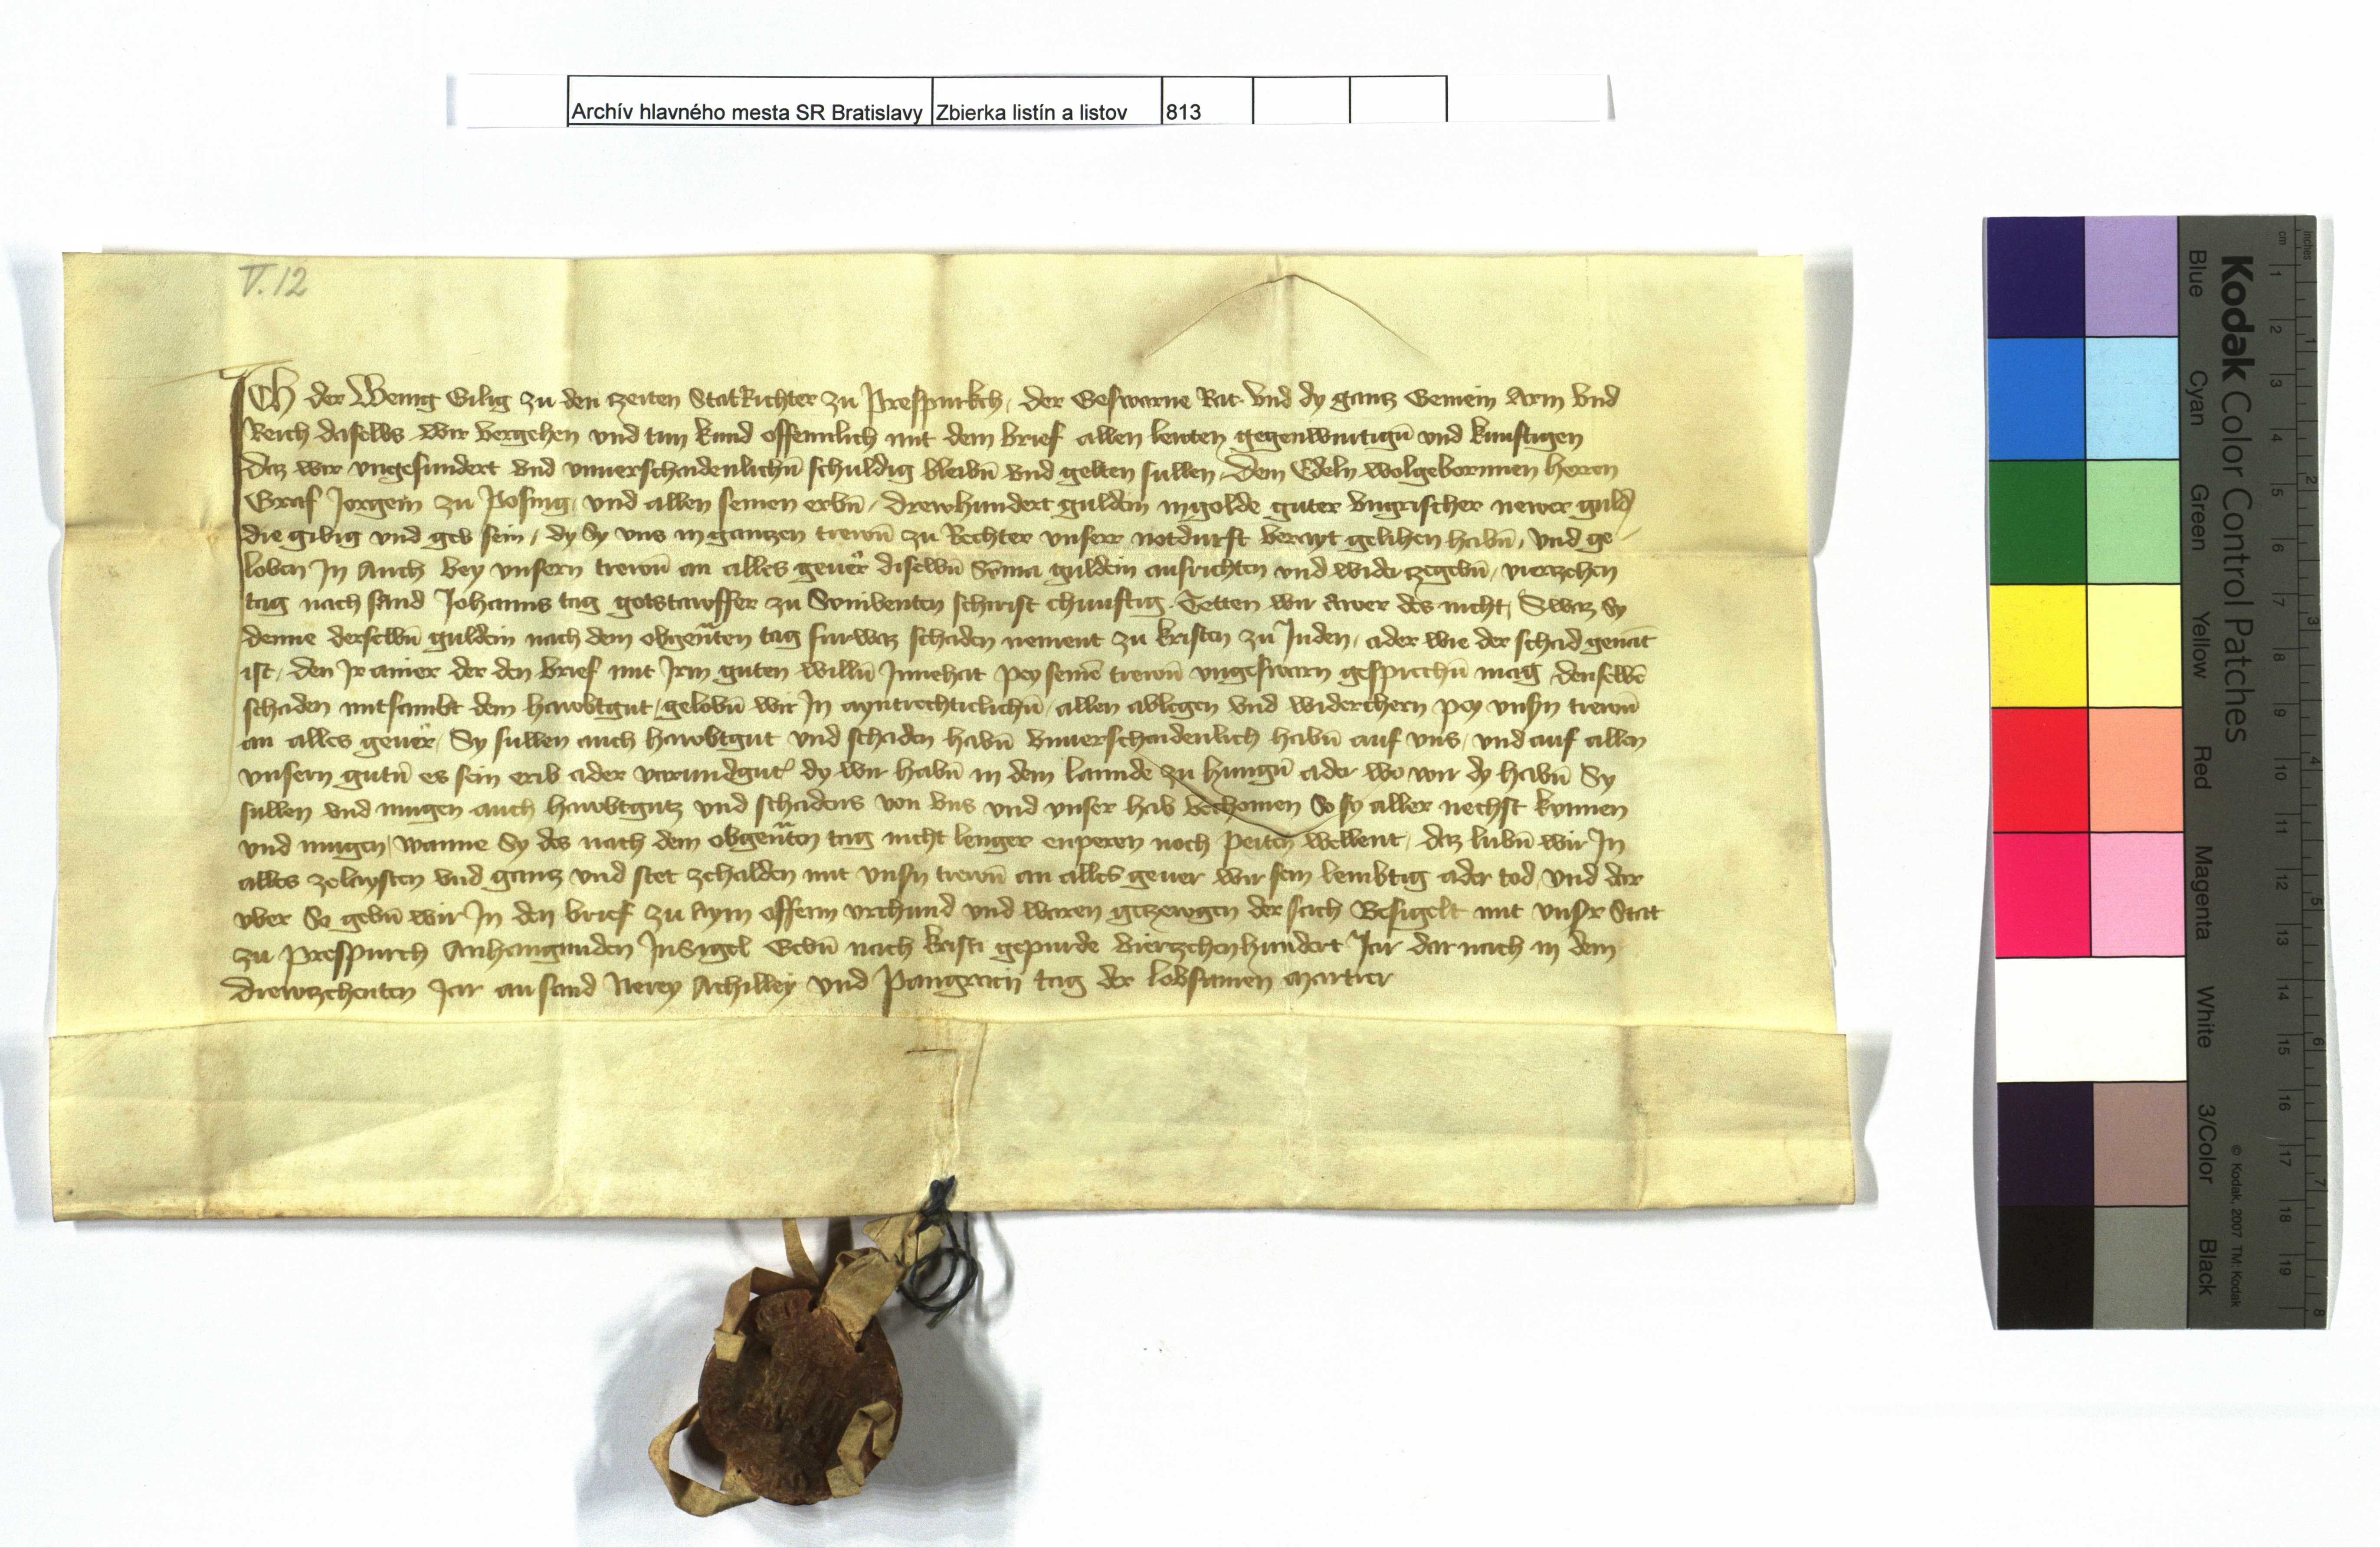 Archív hlavného mesta SR Bratislavy Zbierka listín a listov 813
V. 12
Ich der Wenig Gilig zu den tzeiten StatRichter zu Prespurkch, der Geswarne Rat vnd dy gantz Gemein Arm vnd
Reich daselbs wir vergehen vnd tun kund offennlich mit dem brief allen leuten gegenwurtigñ vnd kunftigen
daz wir vngesundert vnd vnuerschaidenlichñ schuldig bleibñ vnd gelten sullen, dem Edeln wolgebornnen herren
Graf Jorgein zu Posing, vnd allen seinen erbñ, drewhundert guldein in golde guter vngrischer newer guld
die gibig vnd geb sein, dy Sy vns in gantzen trewñ zu Rechter vnserr notdurft berayt gelihen habñ, vnd ge
loben In Auch bey vnsern trewñ an alles geuer diselbñ Sum̄a guldein ausrichten vnd wider zegebñ, viertzehen
tag nach sand Johanns tag gotstawffer zu Sunibenten schirist chunftig. Tetten wir Awer des nicht, Swaz Sy
denne derselbñ guldein nach dem obgen̄ten tag furwaz schaden nement zu kristen zu Juden, ader wie der schad genāt
ist, den Ir ainer der den brief mit Irm guten willñ Innehat pey seinē trewñ vngeswarn gesprechñ mag denselbē
schaden mitsambt dem hawbtgut, gelobñ wir In ayntrechticlichñ, allen ablegen vnd widerchern pey vnsn trewñ
an alles geuer, Sy sullen auch hawbtgut vnd schaden habñ vnuerschaidenlich habñ auf vns, vnd auf allen
vnsern gutñ es sein erib ader varundgut dy wir habñ in dem lannde zu hungñ ader wo wir dy habñ Sy
sullen vnd mugen auch hawbtgutz vnd schadens von vns vnd vnser hab bechomen So sy aller nechst kunnen
vnd mugen, wanne Sy des nach dem obgen̄ten tag nicht lenger enperen noch peiten wellent, daz lubñ wir In
alles zelaysten vnd gantz vnd stet zehalden mit vnsn trewñ an alles geuer wir sein lembtig ader tod, vnd dar
vber So gebñ wir In den brief zu Aym offenn vrchund vnd waren getzewgen der sach Besigelt mit vnsr Stat
zu Prespurch Anhangunden Insigel Gebñ nach kristi gepurde viertzehenhundert Jar dar nach in dem
drewtzehenten Jar an sand Nerey Achilley vnd Pangracij tag der lobsamen martrer
Kodak Color Control Patches
Blue Cyan Green Yellow Red Magenta White 3/Color Black
© Kodak, 2007 TM: Kodak
cm 1 2 3 4 5 6 7 8 9 10 11 12 13 14 15 16 17 18 19
inches 1 2 3 4 5 6 7 8